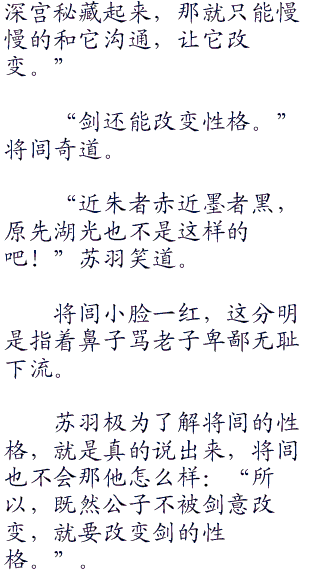 深宫秘藏起来，那就只能慢
慢的和它沟通，让它改
变。”
“剑还能改变性格。”
将闾奇道。
“近朱者赤近墨者黑，
原先湖光也不是这样的
吧！”苏羽笑道。
将闾小脸一红，这分明
是指着鼻子骂老子卑鄙无耻
下流。
苏羽极为了解将闾的性
格，就是真的说出来，将闾
也不会那他怎么样：“所
以，既然公子不被剑意改
变，就要改变剑的性
格。”。